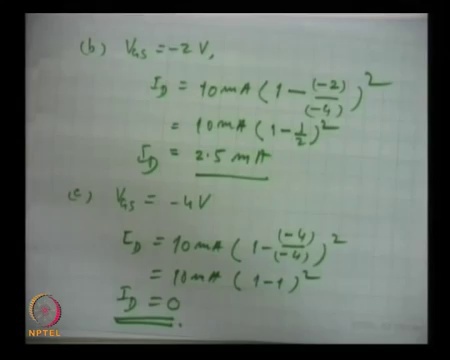 (b) V_GS = -2 V,
I_D = 10 mA ( 1 - (-2)/(-4) )^2
= 10 mA ( 1 - 1/2 )^2
I_D = 2.5 mA
(c) V_GS = -4V
I_D = 10 mA ( 1 - (-4)/(-4) )^2
= 10 mA ( 1 - 1 )^2
I_D = 0
NPTEL